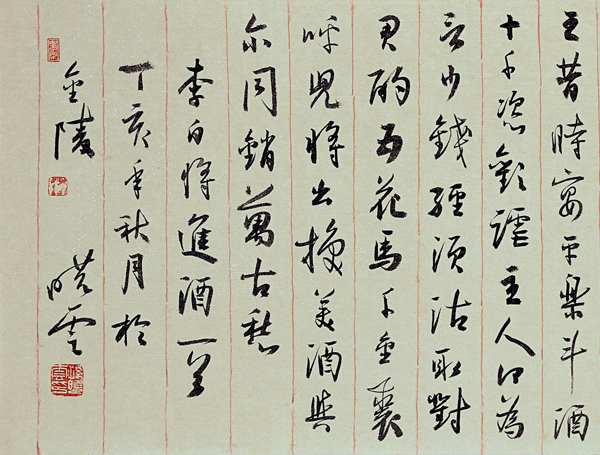 王昔時宴平樂斗酒
十千恣歡謔主人何為
言少錢經須沽取對
君酌五花馬千金裘
呼兒將出換美酒與
尔同銷萬古愁
李白將進酒一首
丁亥年秋月於
金陵 曉雲